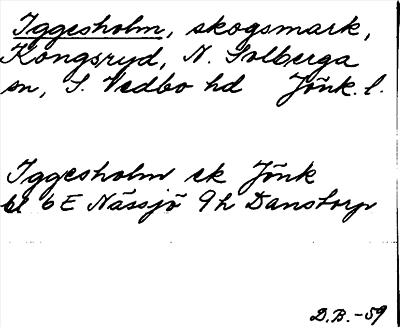 Iggesholm, skogsmark,
Kongsryd, N. Solberga
sn, S. Vedbo hd Jönk. l.
Iggesholm ek Jönk
bl 6E Nässjö 9h Danstorp
D.B. -59